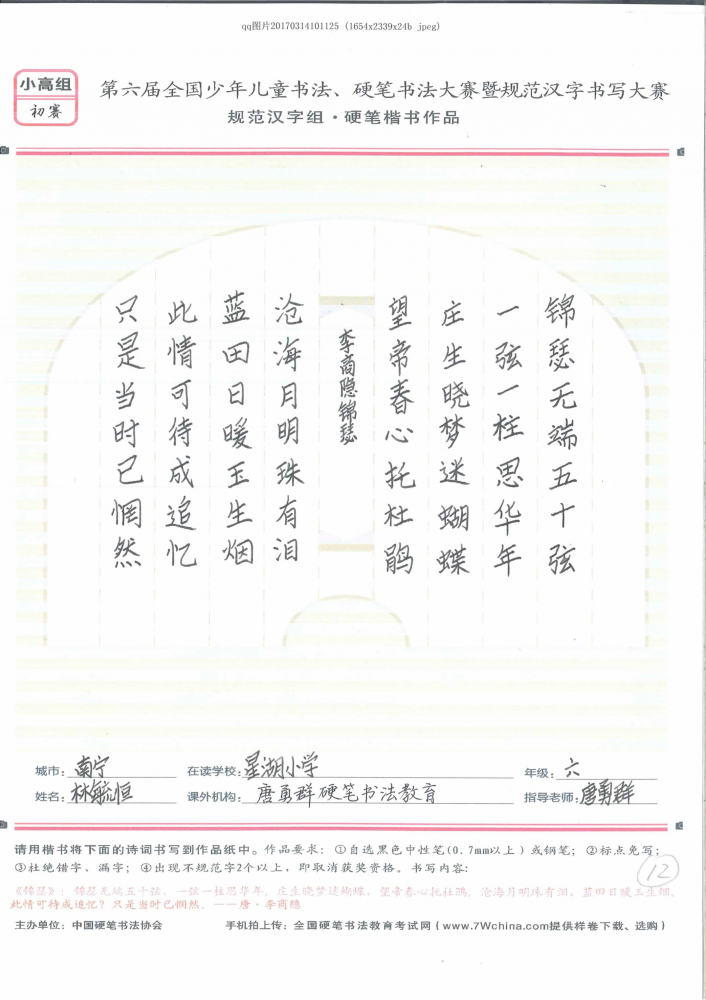 qq图片20170314101125 (1654x2339x24b jpeg)
小高组
初赛
第六届全国少年儿童书法、硬笔书法大赛暨规范汉字书写大赛
规范汉字组·硬笔楷书作品
锦瑟无端五十弦
一弦一柱思华年
庄生晓梦迷蝴蝶
望帝春心托杜鹃
李商隐锦瑟
沧海月明珠有泪
蓝田日暖玉生烟
此情可待成追忆
只是当时已惘然
城市：南宁 在读学校：星湖小学 年级：六
姓名：林毓恒 课外机构：唐勇群硬笔书法教育 指导老师：唐勇群
请用楷书将下面的诗词书写到作品纸中。作品要求：①自选黑色中性笔(0.7mm以上)或钢笔；②标点免写；
③杜绝错字、漏字；④出现不规范字2个以上，即取消获奖资格。书写内容：
12
《锦瑟》：锦瑟无端五十弦，一弦一柱思华年。庄生晓梦迷蝴蝶，望帝春心托杜鹃。沧海月明珠有泪，蓝田日暖玉生烟。
此情可待成追忆？只是当时已惘然。——唐·李商隐
主办单位：中国硬笔书法协会 手机拍上传：全国硬笔书法教育考试网（www.7Wchina.com提供样卷下载、选购）